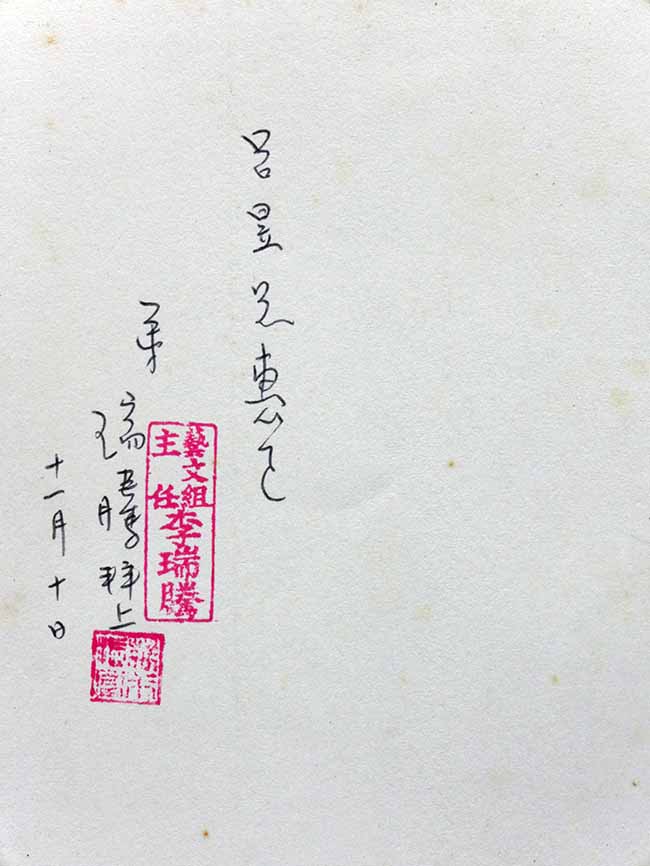 呂昱兄惠正
藝文組
主任
李瑞騰
弟
瑞騰拜上
十一月十日